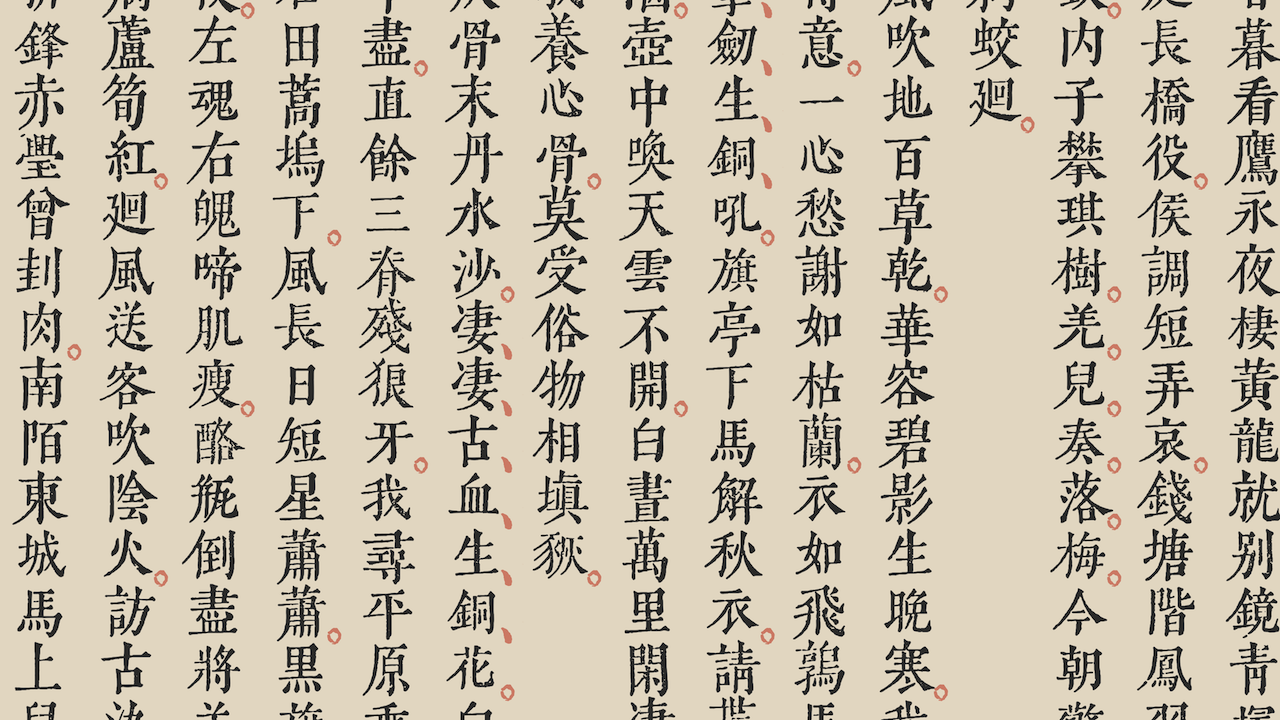 暮看鷹永夜棲黃龍就别鏡靑
長橋役。侯調短弄哀。錢塘階鳳
内子攀琪樹。羌。兒。奏。落。梅。今朝
蛟廻。
風吹地百草乾。華容碧影生晚寒。我
意。一心愁謝如枯蘭。衣如飛鶉馬
劒、生、銅、吼。旗亭下馬解秋衣。請貰
酒。壺中喚天雲不開。白晝萬里閑凄
我養心骨。莫受俗物相塡豗。
灰骨末丹水沙。凄、凄、古、血、生、銅、花。白
盡。直餘三脊殘狼牙。我尋平原乘
田蒿塢下。風長日短星蕭蕭。黑旂
左魂右魄啼肌瘦。酪瓶倒盡將羊
蘆筍紅。廻風送客吹陰火。訪古
鋒赤璺曾刲肉。南陌東城馬上兒